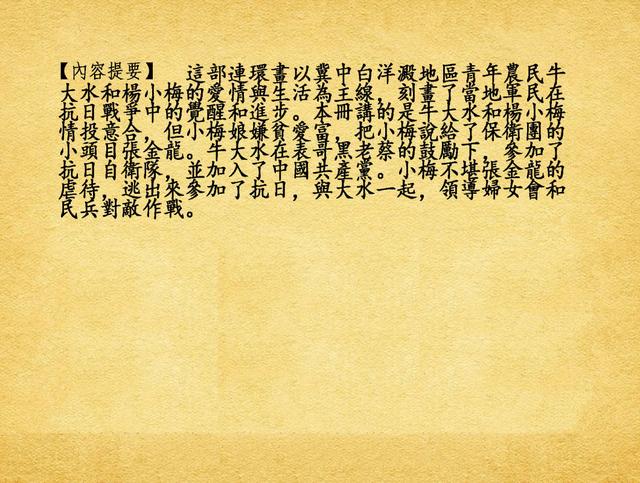 【內容提要】　這部連環畫以冀中白洋澱地區青年農民牛
大水和楊小梅的愛情與生活為主線，刻畫了當地軍民在
抗日戰爭中的覺醒和進步。本冊講的是牛大水和楊小梅
情投意合，但小梅娘嫌貧愛富，把小梅說給了保衛團的
小頭目張金龍。牛大水在表哥黑老蔡的鼓勵下，參加了
抗日自衛隊，並加入了中國共產黨。小梅不堪張金龍的
虐待，逃出來參加了抗日，與大水一起，領導婦女會和
民兵對敵作戰。